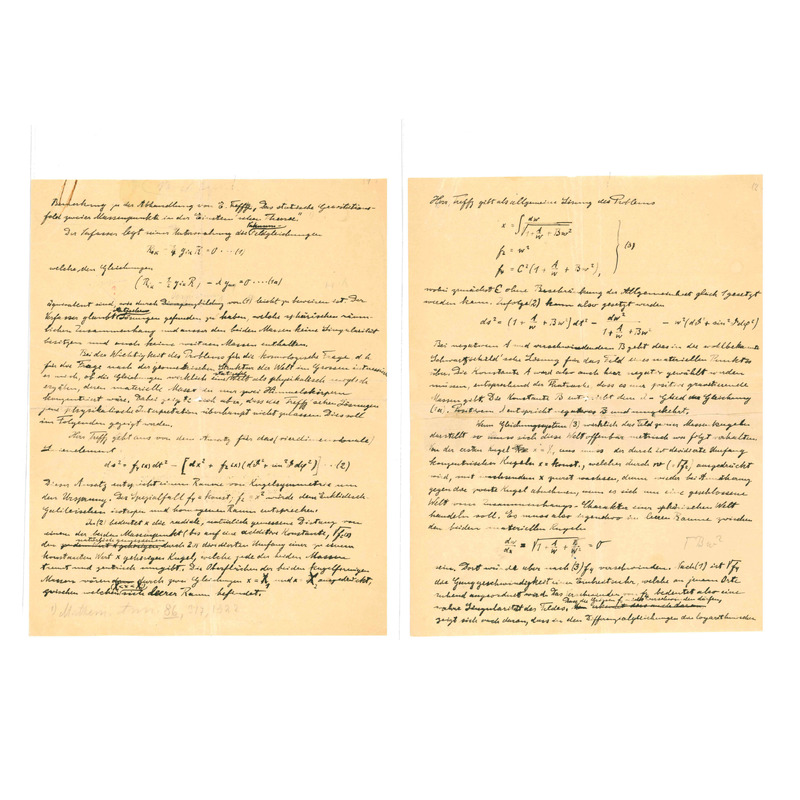 Bemerkung zu der Abhandlung von E. Trefftz, "Das statische Gravitations-
feld zweier Massenpunkte in der Einsteinschen Theorie."
Der Verfasser legt seiner Untersuchung die Vakuum-Feldgleichungen
R_ik − 1/4 g_ik R = 0 ···· (1)
welche den Gleichungen
(R_ik − 1/2 g_ik R) − λ g_ik = 0 ···· (1a)
äquivalent sind, wie durch Divergenzbildung von (1) leicht zu beweisen ist. Der
Verfasser glaubt statische Lösungen gefunden zu haben, welche sphärischen räum-
lichen Zusammenhang und ausser den beiden Massen keine Singularität
besitzen und auch keine weiteren Massen enthalten.
Bei der Wichtigkeit des Problems für die kosmologische Frage, d. h.
für die Frage nach der geometrischen Struktur der Welt im Grossen interessierte
es mich, ob die Gleichungen wirklich eine statische Welt als physikalisch möglich
ergäben, deren materielle Masse in nur zwei Himmelskörpern
konzentriert wäre. Dabei zeigte sich aber, dass die Trefftz'schen Lösungen
jene physikalische Interpretation überhaupt nicht zulassen. Dies soll
im Folgenden gezeigt werden.
Herr Trefftz geht aus von dem Ansatz für das (vierdimensionale)
Linienelement
ds² = f₄(x) dt² − [dx² + f₂(x)(dϑ² + sin²ϑ dφ²)] ·· (2)
Dieser Ansatz entspricht einem Raume von Kugelsymmetrie um
den Ursprung. Der Spezialfall f₄ = konst, f₂ = x² würde dem Euklidisch-
Galileischen isotropen und homogenen Raum entsprechen.
In (2) bedeutet x die radiale, natürlich gemessene Distanz von
einem der beiden Massenpunkte (bis auf eine additive Konstante), √f₂(x)
den durch 2π dividierten Umfang einer zu einem
konstanten Wert x gehörigen Kugel, welche jede der beiden Massen
trennt und zentrisch umgibt. Die Oberflächen der beiden kugelförmigen
Massen wären durch zwei Gleichungen x = X₁ und x = X₂ ausgedrückt,
zwischen welchen (X₁ < x < X₂) leerer Raum befindet.
1) Mathem. Ann. 86, 317, 1922
Herr Trefftz gibt als allgemeine Lösung des Problems
x = ∫ dw / √(1 + A/w + Bw²)
f₂ = w²
f₄ = C² (1 + A/w + Bw²),
} (3)
wobei zunächst C ohne Beschränkung der Allgemeinheit gleich 1 gesetzt
werden kann. Infolge (2) kann also gesetzt werden
ds² = (1 + A/w + Bw²) dt² − dw² / (1 + A/w + Bw²) − w²(dϑ² + sin²ϑ dφ²)
Bei negativem A und verschwindendem B geht dies in die wohlbekannte
Schwarzschild'sche Lösung für das Feld eines materiellen Punktes
über. Die Konstante A wird also auch hier negativ gewählt werden
müssen, entsprechend der Thatsache, dass es nur positive gravitierende
Massen gibt. Die Konstante B entspricht dem λ-Glied der Gleichung
(1a). Positivem λ entspricht negatives B und umgekehrt.
Wenn Gleichungssystem (3) wirklich das Feld zweier Massenkugeln
darstellt, so muss sich diese Welt offenbar metrisch wie folgt verhalten.
Von der ersten Kugel x = X₁ aus muss der durch 2π dividierte Umfang
konzentrischer Kugeln x = konst., welcher durch w (√f₂) ausgedrückt
wird, mit wachsendem x zuerst wachsen, dann wieder bei Annäherung
gegen die zweite Kugel abnehmen, wenn es sich um eine geschlossene
Welt vom Zusammenhangs-Charakter einer sphärischen Welt
handeln soll. Es muss also irgendwo im leeren Raume zwischen
den beiden materiellen Kugeln
dw/dx = √(1 + A/w + Bw²) = 0
sein. Dort würde aber nach (3) f₄ verschwinden. Nach (1) ist √f₄
die Ganggeschwindigkeit einer Einheitsuhr, welche an jenem Orte
ruhend angeordnet wird. Das Verschwinden von f₄ bedeutet also eine
wahre Singularität des Feldes. Dass die Grössen f nicht verschwinden dürfen,
zeigt sich auch daran, dass in den Differenzialgleichungen die logarithmischen